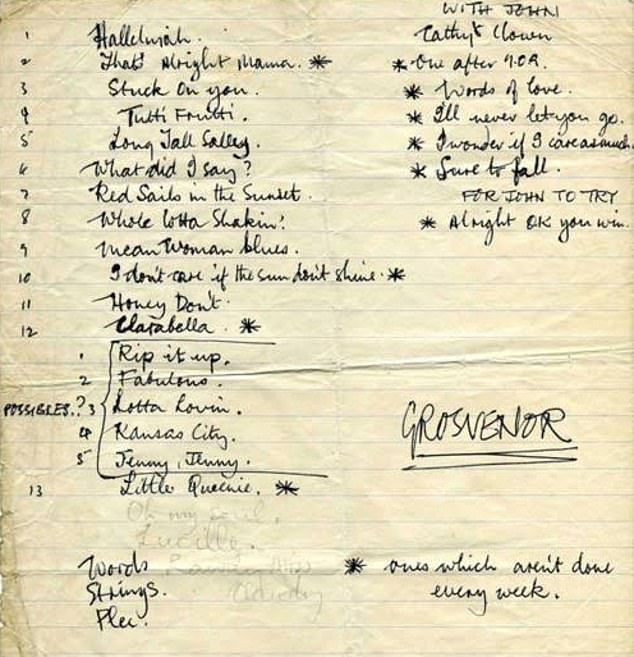 1 Hallelujah.
2 That's Alright Mama. *
3 Stuck On you.
4 Tutti Frutti.
5 Long Tall Salley.
6 What did I Say?
7 Red Sails in the Sunset.
8 Whole lotta Shakin!
9 Mean Woman blues.
10 I don't care if the sun don't shine. *
11 Honey Don't.
12 Clarabella. *
POSSIBLES.?
1 Rip it up.
2 Fabulous.
3 Lotta Lovin.
4 Kansas City.
5 Jenny, Jenny.
13 Little Queenie. *
Oh my soul.
Lucille.
Miss
Clawdy
Words
Strings.
Plec.
WITH JOHN
Cathy's Clown
* One after 9.0.9.
* Words of love.
* I'll never let you go.
* I wonder if I care as much.
* Sure to fall.
FOR JOHN TO TRY
* Alright OK you win.
GROSVENOR
* ones which aren't done
every week.